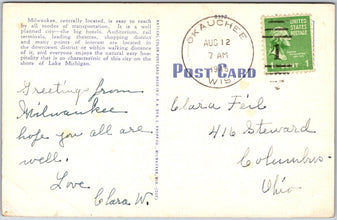 Milwaukee, centrally located, is easy to reach
by all modes of transportation. It is a well
planned city—the big hotels, Auditorium, rail
terminals, leading theatres, shopping district
and many points of interest are located in
the downtown district or within walking distance
of it, and everyone enjoys the warmth and
hospitality that is so characteristic of this city on the
shore of Lake Michigan.
Greetings from
Milwaukee
hope you all are
well.
Love
Clara W.
OKAUCHEE
AUG 12
7 AM
WIS
POST CARD
Clara Feil
416 Steward
Columbus
Ohio